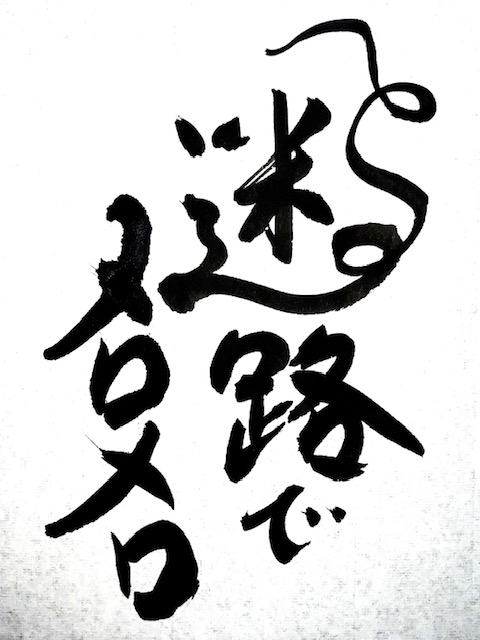 迷路で
メロメロ